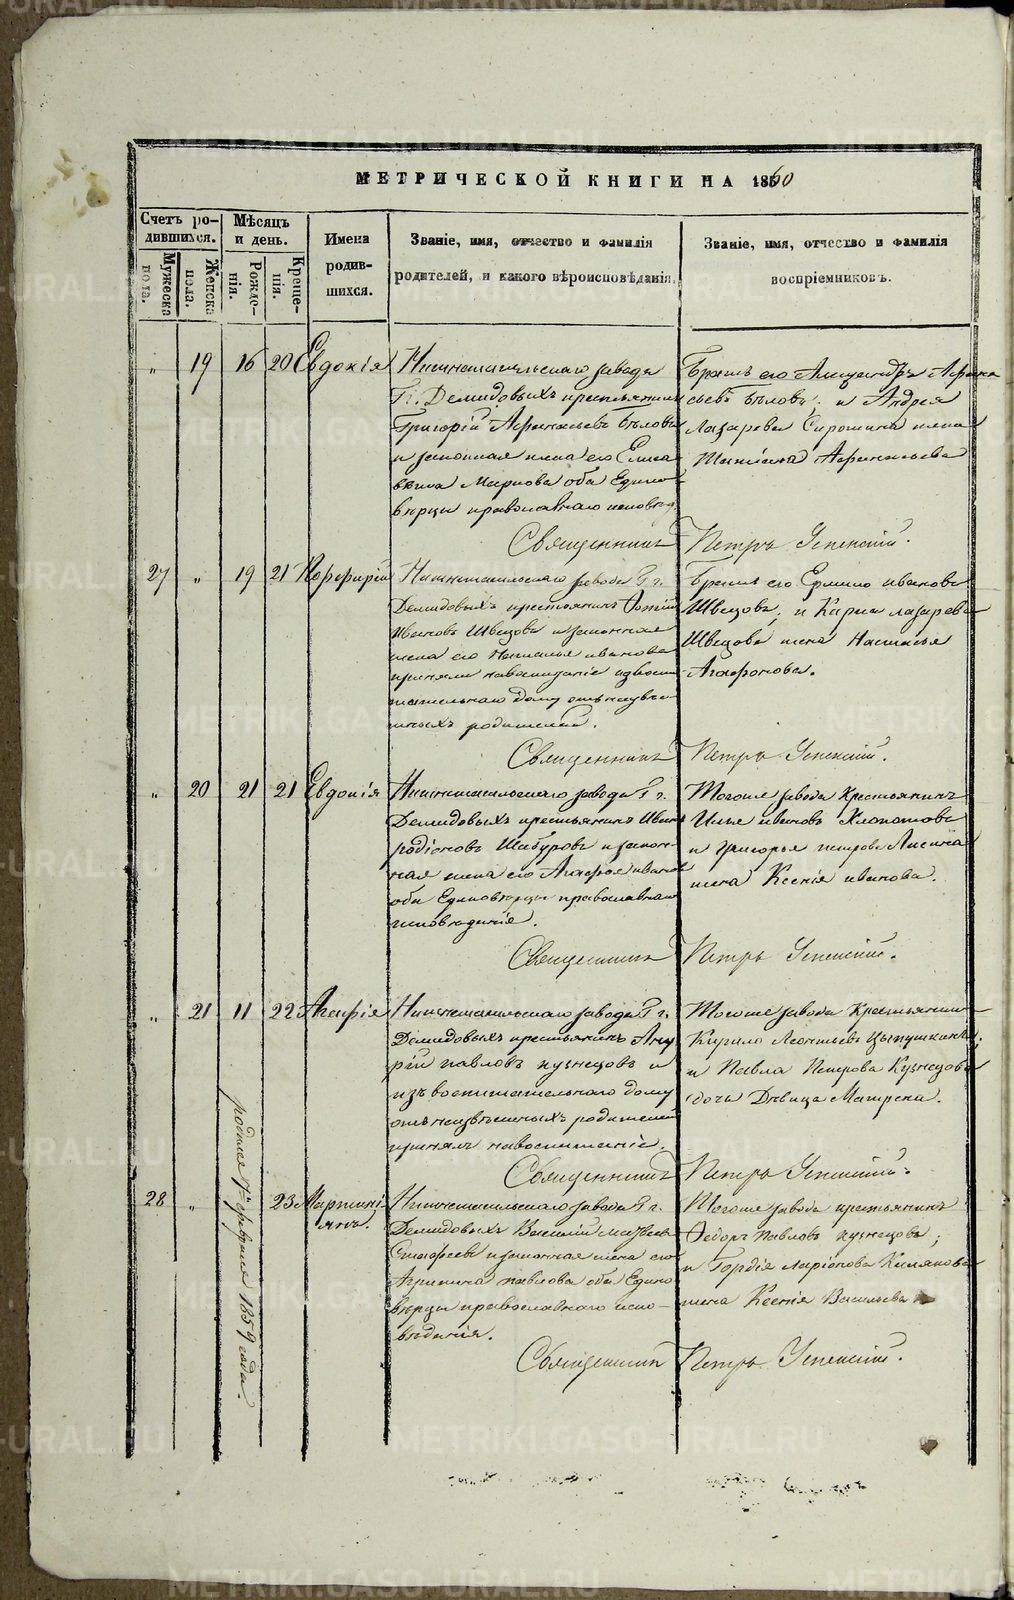 МЕТРИЧЕСКОЙ КНИГИ НА 1860
Счетъ ро-
дившихся.
Мужеска
пола.
Женска
пола.
Мѣсяцъ
и день.
Рожде-
нія.
Креще-
нія.
Имена
родив-
шихся.
Званіе, имя, отчество и фамилія
родителей, и какого вѣроисповѣданія.
Званіе, имя, отчество и фамилія
воспріемниковъ.
„ 19 16 20 Евдокія
Нижнетагильскаго завода
Гг. Демидовыхъ крестьянинъ
Григорій Афанасьевъ Бѣловъ
и законная жена его Елиса
вета Маркова оба Едино
вѣрцы православнаго исповѣд.
Братъ его Александръ Афана
сьевъ Бѣловъ. и Андрея
Лазарева Сирошина жена
Татіана Афанасьева
Священникъ Петръ Успенскій.
27 „ 19 21 Порфирій
Нижнетагильскаго завода Гг.
Демидовыхъ крестьянинъ Фотій
Ивановъ Швецовъ и законная
жена его Наталья иванова
приняли навоспитаніе изъвоспи
тательнаго дому отънеизвѣст
ныхъ родителей.
Братъ его Ермило ивановъ
Швецовъ; и Карпа лазарева
Швецова жена Настасья
Агафонова.
Священникъ Петръ Успенскій.
„ 20 21 21 Евдокія
Нижнетагильскаго завода Гг.
Демидовыхъ крестьянинъ Иванъ
родіоновъ Шабуровъ и закон-
ная жена его Агафья иванова
оба Единовѣрцы православнаго
исповѣданія.
Тогоже завода Крестьянинъ
Илья ивановъ Хлопотовъ
и григорья петрова Лисина
жена Ксенія иванова.
Священникъ Петръ Успенскій.
„ 21 11 22 Агафія
Нижнетагильскаго завода Гг.
Демидовыхъ крестьянинъ Ану
рій павловъ кузнецовъ и
изъ воспитательнаго дому
отънеизвѣстныхъ родителей
принялъ навоспитаніе.
Тогоже завода Крестьянинъ
Кирило Леонтьевъ Цыпушкинъ;
и Павла Петрова Кузнецова
дочь Дѣвица Матрена.
Священникъ Петръ Успенскій.
28 „ родился 7го февраля 1859 года. 23 Мартини-
анъ.
Нижнетагильскаго завода Гг.
Демидовыхъ Василій
и законная жена его
Агрипина павлова оба Едино
вѣрцы православнаго испо-
вѣданія.
Тогоже завода крестьянинъ
Федоръ павловъ кузнецовъ;
и Гордія Ларіонова
жена Ксенія Васильева
Священникъ Петръ Успенскій.
METRIKI.GASO-URAL.RU